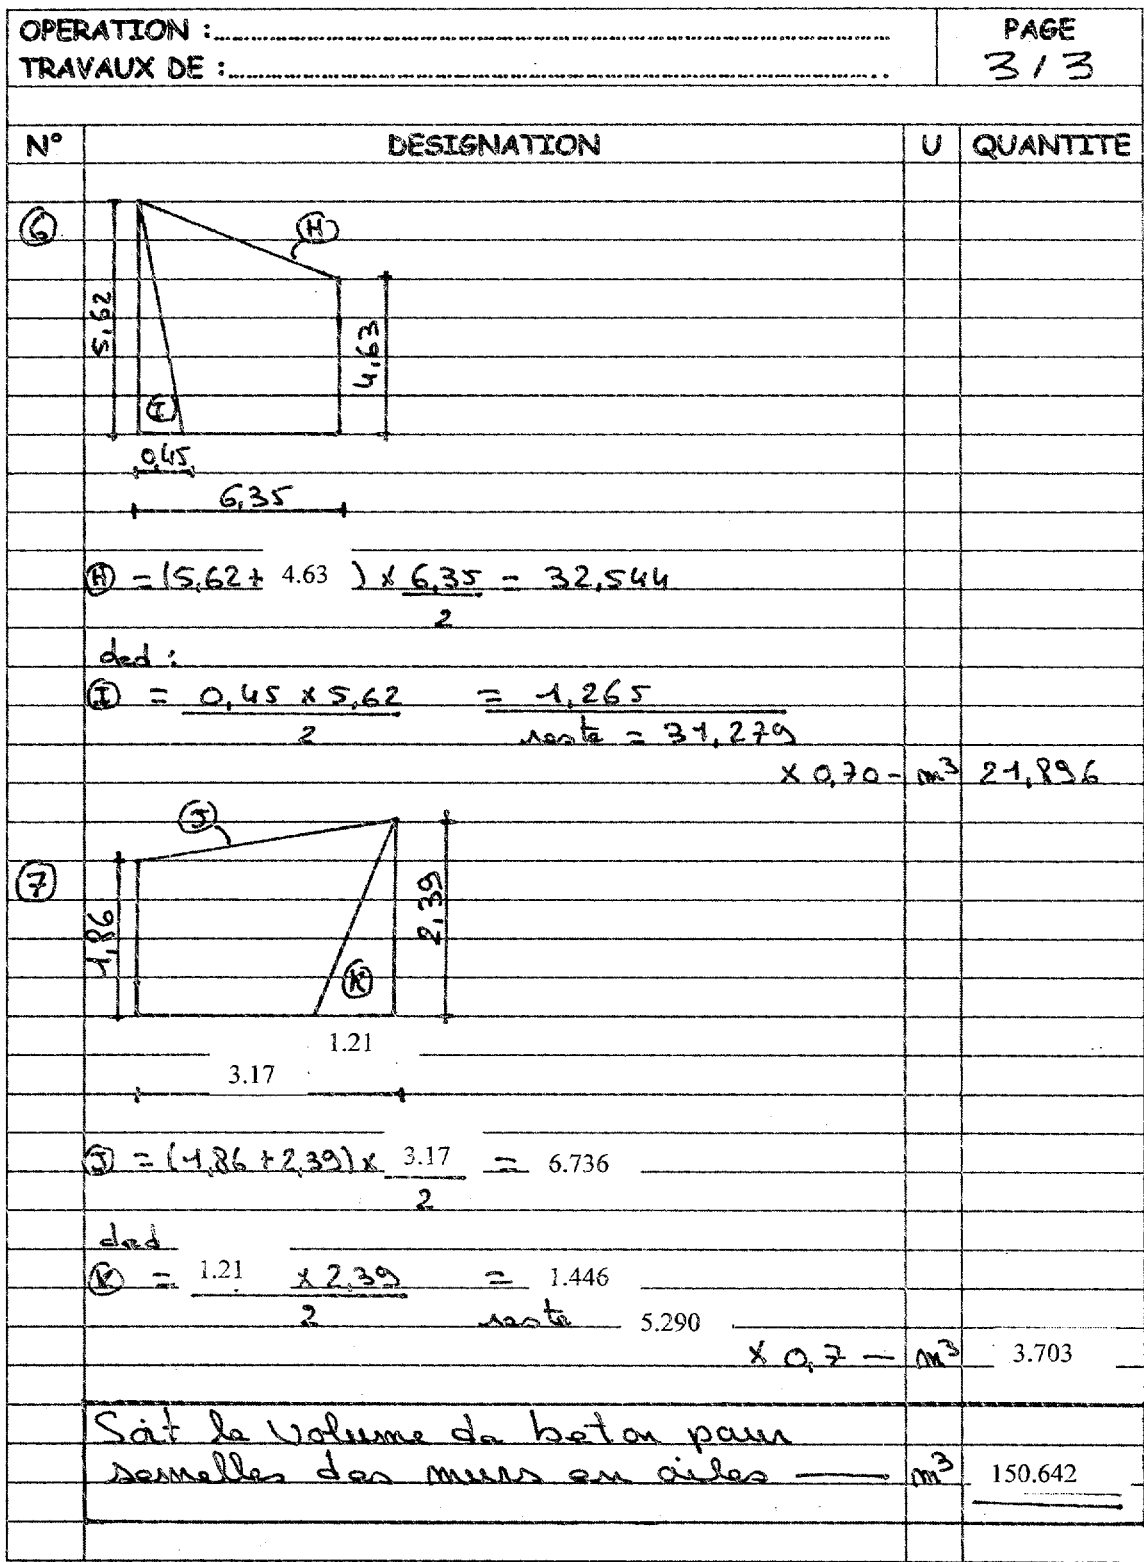 OPERATION :........................................
TRAVAUX DE :........................................
PAGE
3 / 3
N° DESIGNATION U QUANTITE
6
H
5,62
4,63
I
0,45
6,35
H = (5,62 + 4.63 ) x 6,35 = 32,544
2
ded :
I = 0,45 x 5,62 = 1,265
2 reste = 31,279
x 0,70 - m³ 21,896
J
7
1,86
2,39
K
1.21
3.17
J = (1,86 + 2,39) x 3.17 = 6.736
2
ded
K = 1.21 x 2,39 = 1.446
2 reste 5.290
x 0,7 — m³ 3.703
Soit le Volume de beton pour
semelles des murs en ailes — m³ 150.642